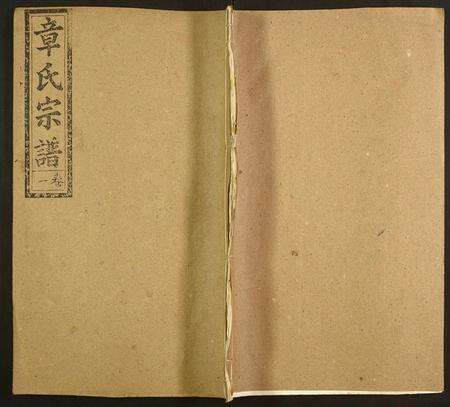 章氏宗譜
卷一